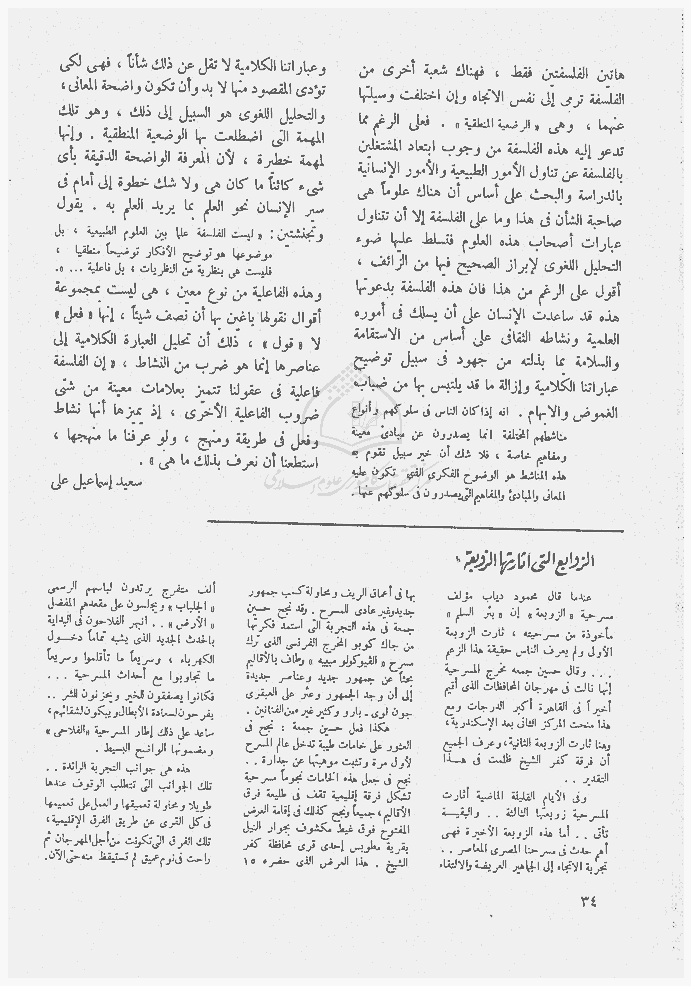 هاتين الفلسفتين فقط ، فهناك شعبة أخرى من
الفلسفة ترمى إلى نفس الاتجاه وإن اختلفت وسيلتها
عنهما ، وهى « الوضعية المنطقية » . فعلى الرغم مما
تدعو إليه هذه الفلسفة من وجوب ابتعاد المشتغلين
بالفلسفة عن تناول الأمور الطبيعية والأمور الإنسانية
بالدراسة والبحث على أساس أن هناك علوماً هى
صاحبة الشأن فى هذا وما على الفلسفة إلا أن تتناول
عبارات أصحاب هذه العلوم فتسلط عليها ضوء
التحليل اللغوى لإبراز الصحيح فيها من الزائف ،
أقول على الرغم من هذا فان هذه الفلسفة بدعوتها
هذه قد ساعدت الإنسان على أن يسلك فى أموره
العلمية ونشاطه الثقافى على أساس من الاستقامة
والسلامة بما بذلته من جهود فى سبيل توضيح
عباراتنا الكلامية وإزالة ما قد يلتبس بها من ضباب
الغموض والابهام . انه إذا كان الناس فى سلوكهم وأنواع
مناشطهم المختلفة انما يصدرون عن مبادئ معينة
ومفاهيم خاصة ، فلا شك أن خير سبيل تقوم به
هذه المناشط هو الوضوح الفكرى الذى تكون عليه
المعانى والمبادئ والمفاهيم التى يصدرون فى سلوكهم عنها .
وعباراتنا الكلامية لا تقل عن ذلك شأناً ، فهى لكى
تؤدى المقصود منها لا بد وأن تكون واضحة المعانى،
والتحليل اللغوى هو السبيل إلى ذلك ، وهو تلك
المهمة التى اضطلعت بها الوضعية المنطقية . وإنها
لمهمة خطيرة ، لأن المعرفة الواضحة الدقيقة بأى
شىء كائناً ما كان هى ولا شك خطوة إلى أمام فى
سير الإنسان نحو العلم بما يريد العلم به . يقول
وتجنشتين: « ليست الفلسفة علما بين العلوم الطبيعية ، بل
موضوعها هو توضيح الأفكار توضيحاً منطقيا ،
فليست هى بنظرية من النظريات ، بل فاعلية ... ».
وهذه الفاعلية من نوع معين ، هى ليست بمجموعة
أقوال نقولها باغين بها أن نصف شيئاً ، إنها « فعل »
لا « قول » ، ذلك أن تحليل العبارة الكلامية إلى
عناصرها إنما هو ضرب من النشاط ، « إن الفلسفة
فاعلية فى عقولنا تتميز بعلامات معينة من شتى
ضروب الفاعلية الأخرى ، إذ يميزها أنها نشاط
وفعل فى طريقة ومنهج ، ولو عرفنا ما منهجها ،
استطعنا أن نعرف بذلك ما هى » .
سعيد إسماعيل على
الزوابع التى أثارتها الزوبعة
عندما قال محمود دياب مؤلف
مسرحية « الزوبعة » إن « بئر السلم »
مأخوذة من مسرحيته ، ثارت الزوبعة
الأولى ولم يعرف الناس حقيقة هذا الزعم
... وقال حسين جمعه مخرج المسرحية
إنها نالت فى مهرجان المحافظات الذى أقيم
أخيراً فى القاهرة أكبر الدرجات ومع
هذا منحت المركز الثانى بعد الإسكندرية،
وهنا ثارت الزوبعة الثانية، وعرف الجميع
أن فرقة كفر الشيخ ظلمت فى هــذا
التقدير . .
وفى الأيام القليلة الماضية أثارت
المسرحية زوبعتها الثالثة .. والبقيـــة
تأتى .. أما هذه الزوبعة الأخيرة فهى
أهم حدث فى مسرحنا المصرى المعاصر ..
تجربة الاتجاه إلى الجماهير العريضة والالتقاء
بها فى أعماق الريف ومحاولة كسب جمهور
جديد وغير عادى للمسرح . وقد نجح حسين
جمعة فى هذه التجربة التى استمد فكرتها
من جاك كوبو المخرج الفرنسى الذى ترك
مسرح « الفيو كولومبييه » وطاف بالأقاليم
بحثاً عن جمهور جديد وعناصر جديدة
إلى أن وجد الجمهور وعثر على العبقرى
جون لوى ـ بارو وكثير غيره من الفنانين .
هكذا فعل حسين جمعة : نجح فى
العثور على خامات طيبة تدخل عالم المسرح
لأول مرة وتثبت موهبتها عن جدارة ..
نجح فى جعل هذه الخامات نجوماً مسرحية
تشكل فرقة إقليمية تقف فى طليعة فرق
الأقاليم، جميعاً ونجح كذلك فى إقامة العرض
المفتوح فوق غيط مكشوف بجوار النيل
بقرية مطوبس إحدى قرى محافظة كفر
الشيخ . هذا العرض الذى حضره ١٥
ألف متفرج يرتدون لباسهم الرسمى
« الجلباب » ويجلسون على مقعدهم المفضل
« الأرض » .. انبهر الفلاحون فى البداية
بالحدث الجديد الذى يشبه تماماً دخــول
الكهرباء ، وسريعاً ما تأقلموا وسريعاً
ما تجاوبوا مع أحداث المسرحية ...
فكانوا يصفقون للخير ويحزنون للشر ..
يفرحون لسعادة الأبطال ويبكون لشقائهم،
ساعد على ذلك إطار المسرحية « الفلاحى »
ومضمونها الواضح البسيط .
هذه هى جوانب التجربة الرائدة ..
تلك الجوانب التى تتطلب الوقوف عندها
طويلا ومحاولة تعميقها والعمل على تعميمها
فى كل القرى عن طريق الفرق الإقليمية،
تلك الفرق التى تكونت من أجل المهرجان ثم
راحت فى نوم عميق لم تستيقظ منه حتى الآن.
٣٤